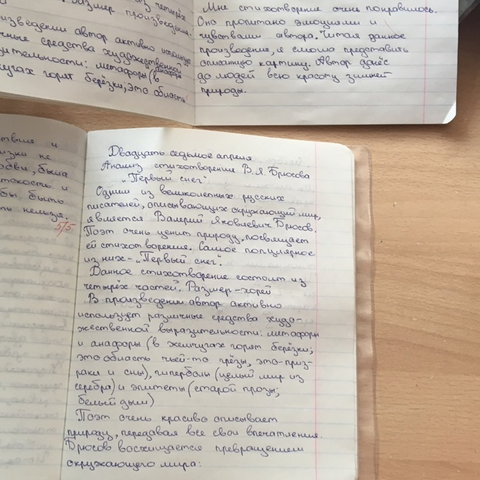 четырёх
размер произведен
изведении автор активно использу
чные средства художественной
зительности: метафоры и анафоры (в
чугах горят берёзки, это область
Мне стихотворение очень понравилось.
Оно пропитано эмоциями и
чувствами автора. Читая данное
произведение, я смогла представить
описанную картину. Автор донёс
до людей всю красоту зимней
природы.
ствия и
изни не
бви, была
токость и
бы быть
ть нельзя.
5/5
Двадцать седьмое апреля
Анализ стихотворения В.Я Брюсова
„Первый снег"
Одним из великолепных русских
писателей, описывающих окружающий мир,
является Валерий Яковлевич Брюсов.
Поэт очень ценит природу, посвящает
ей стихотворения. Самое популярное
из них-„Первый снег".
Данное стихотворение состоит из
четырёх частей. Размер-хорей
В произведении автор активно
использует различные средства худо-
жественной выразительности: метафоры
и анафоры (в жемчугах горят берёзки;
это область чьей-то грёзы, это-приз-
раки и сны), гиперболы (целый мир из
серебра) и эпитеты (старой прозы;
белый дым)
Поэт очень красиво описывает
природу, передавая все свои впечатления.
Брюсов восхищается превращением
окружающего мира: